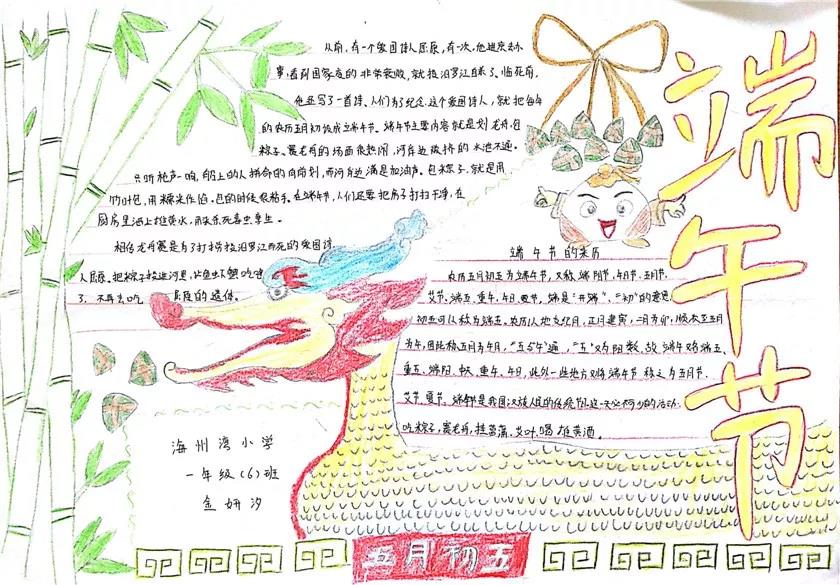 从前，有一个爱国诗人屈原，有一次，他进京办
事，看到国家真的非常衰败，就投汨罗江自杀了，临死前，
他还写了一首诗，人们为了纪念，这个爱国诗人，就把每年
的农历五月初设成立端午节。端午节主要内容就是划龙舟，包
粽子，赛龙舟的场面很热闹，河岸边被挤的水池不通。
只听枪声一响，船上的人拼命的向前划，而河岸边满是加油声。包粽子，就是用
竹叶包，用糯米作馅，包的时候很粘手。在端午节，人们还要把房子打扫干净，在
厨房里洒上雄黄水，用来杀死毒虫
相传龙舟赛是为了打捞投汨罗江而死的爱国诗
人屈原。把粽子投进河里，让鱼虾蟹吃
了，不再去吃 的遗体。
端午节的来历
农历五月初五为端午节，又称端阳节、午日节、五月节、
艾节、端五、重午、午日、夏节，端是"开端"、"初"的意思
初五可以称为端五。农历以地支纪月，正月建寅，二月为卯，顺次至五月
为午，因此称五月为午月，"五"与"午"通，"五"又为阳数，故端午又名端五、
重五、端阳、中天、重午、午日，此外一些地方又将端午节称之为五月节、
艾节、夏节。端午节是我国汉族人民的传统节日，这一天必不可少的活动：
吃粽子，赛龙舟，挂菖蒲、艾叶，喝雄黄酒。
端午节
海州湾小学
一年级（6）班
金妍汐
五月初五